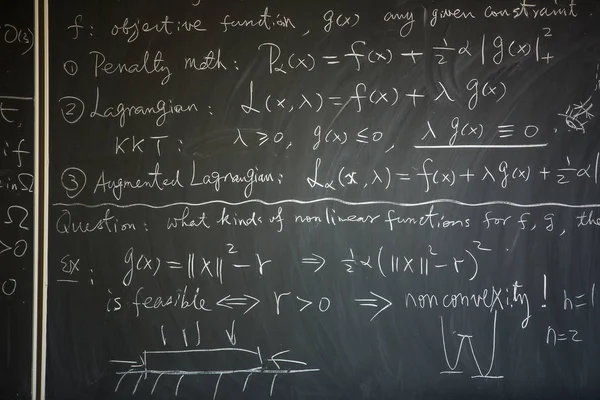 f: objective function, g(x) any given constraint
① Penalty meth: Pα(x) = f(x) + ½ α |g(x)|²₊
② Lagrangian: L(x, λ) = f(x) + λ g(x)
KKT: λ ≥ 0, g(x) ≤ 0, λ g(x) ≡ 0
③ Augmented Lagrangian: Lα(x, λ) = f(x) + λ g(x) + ½ α |
Question: what kinds of nonlinear functions for f, g, the
Ex: g(x) = ||x||² − r ⇒ ½ α (||x||² − r)²
is feasible ⇔ r > 0 ⇒ nonconvexity! n=1
n=2
if
in Ω
Ω
>0
0